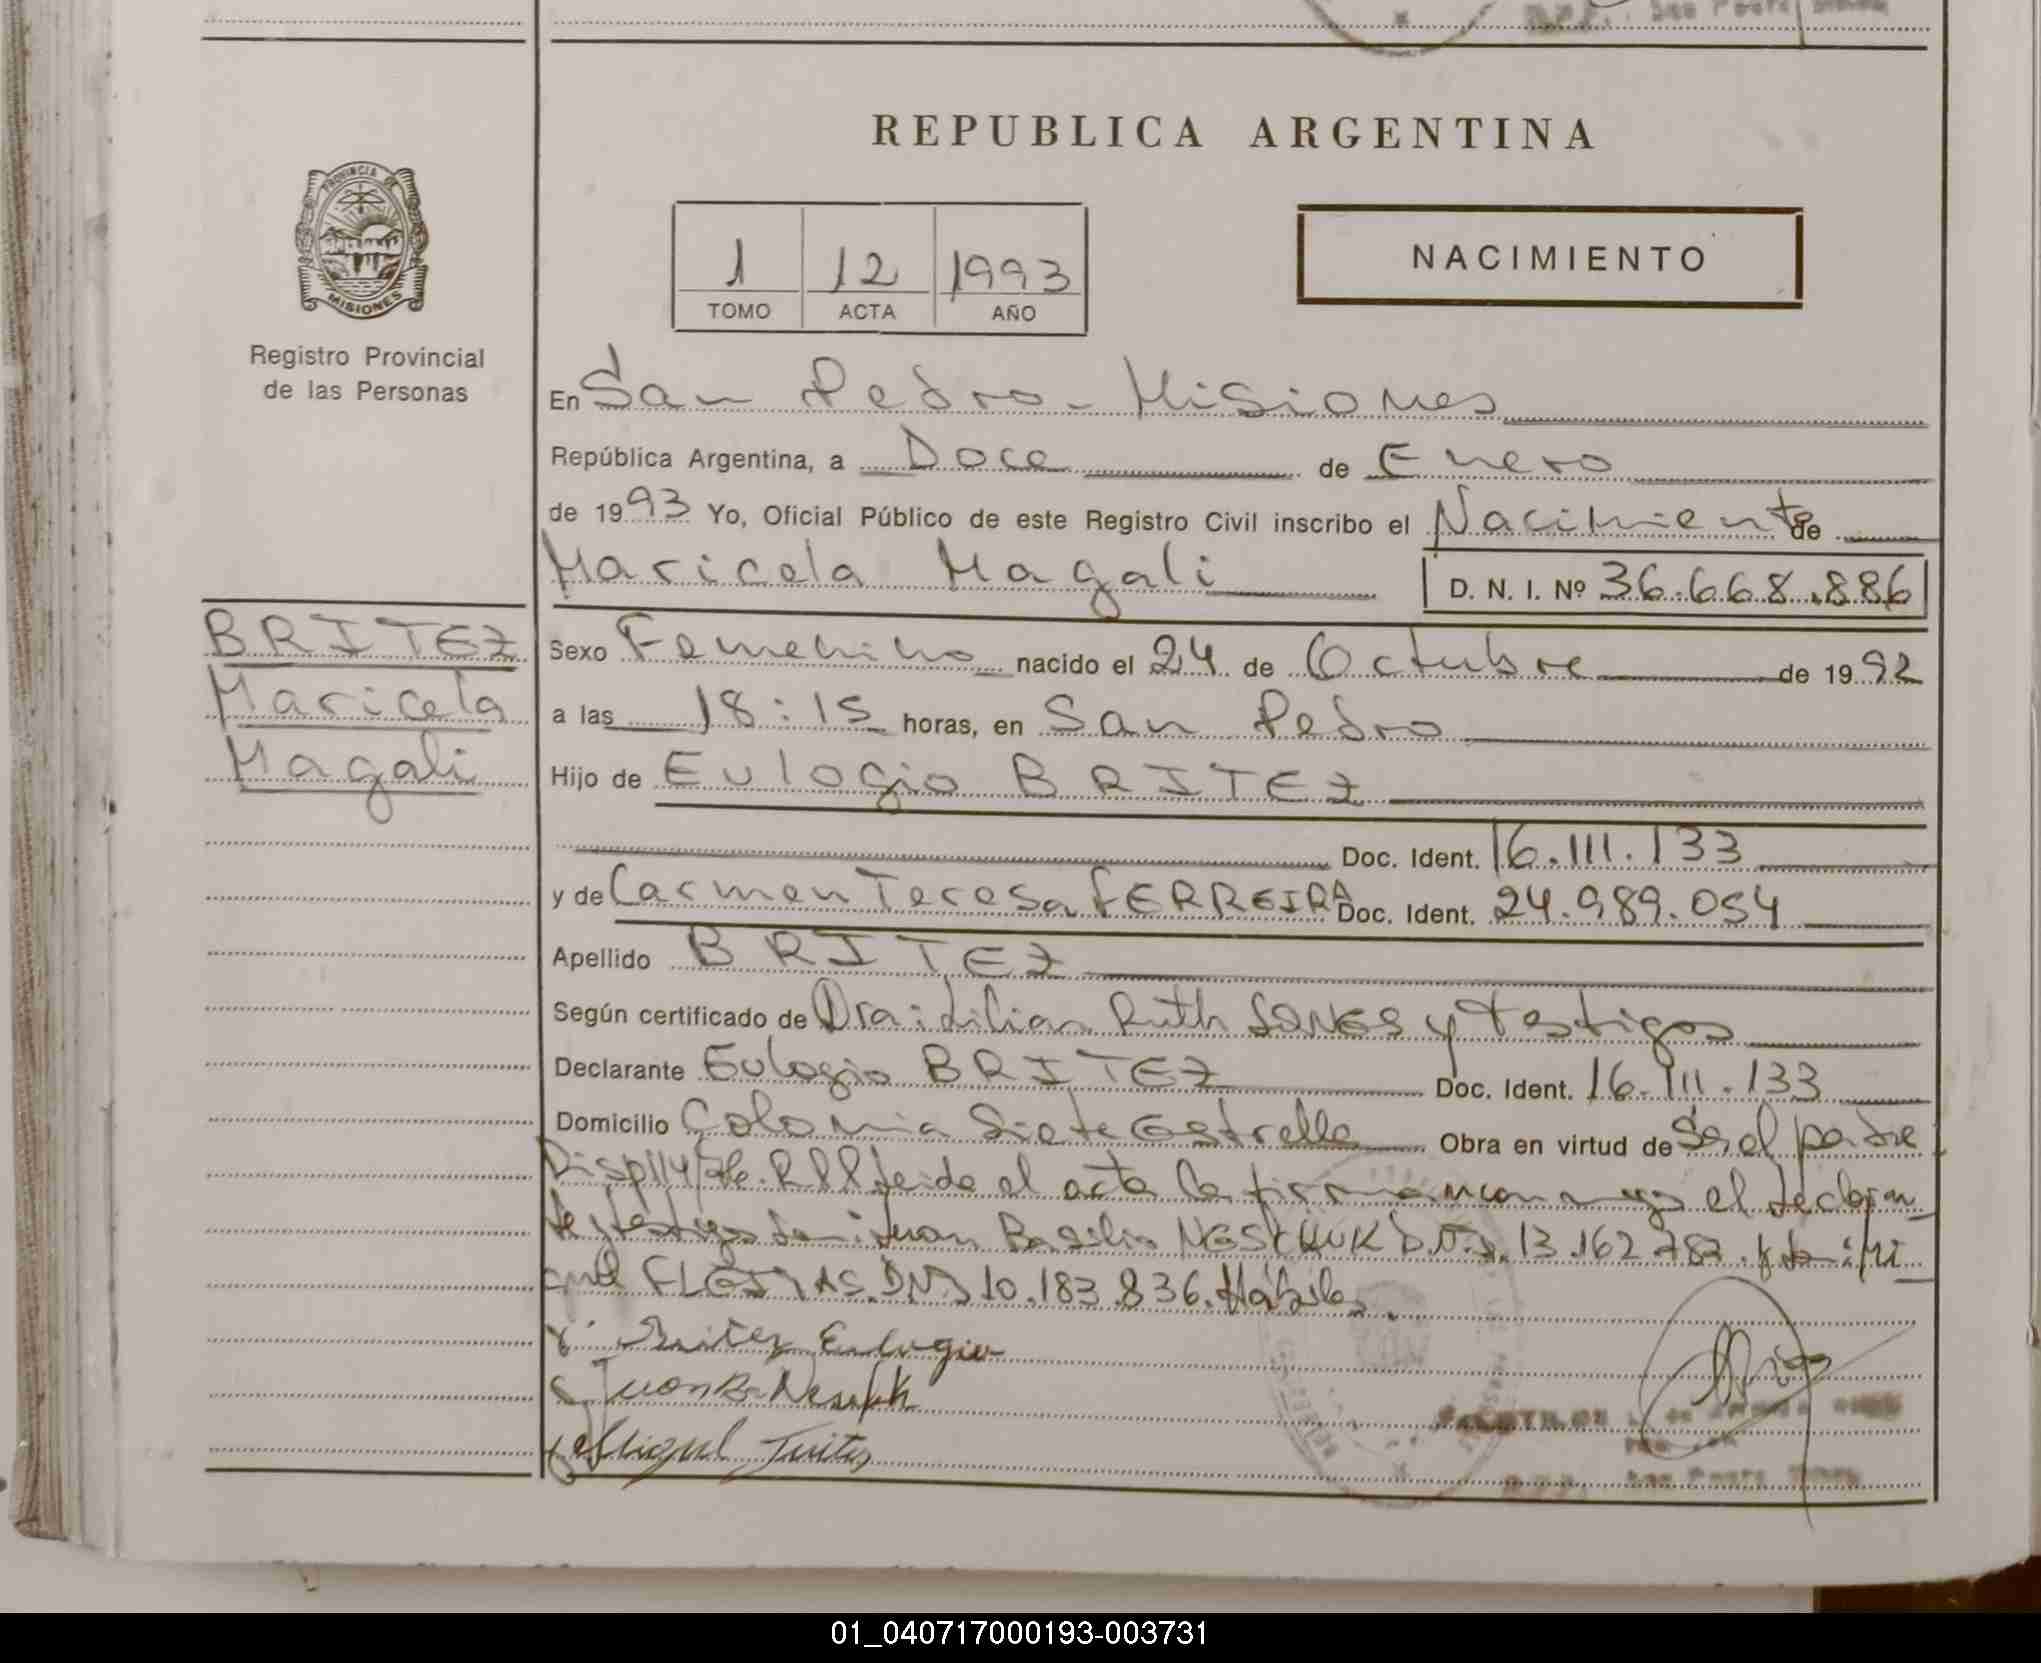 REPUBLICA ARGENTINA
PROVINCIA DE
MISIONES
Registro Provincial
de las Personas
1 12 1993
TOMO ACTA AÑO
NACIMIENTO
En San Pedro - Misiones
República Argentina, a Doce de Enero
de 1993 Yo, Oficial Público de este Registro Civil inscribo el Nacimiento de
Maricela Magali
D. N. I. Nº 36.668.886
BRITEZ
Maricela
Magali
Sexo Femenino nacido el 24 de Octubre de 1992
a las 18:15 horas, en San Pedro
Hijo de Eulogio BRITEZ
Doc. Ident. 16.111.133
y de Carmen Teresa FERREIRA Doc. Ident. 24.989.054
Apellido BRITEZ
Según certificado de Dra: Lilian Ruth y testigos
Declarante Eulogio BRITEZ Doc. Ident. 16.111.133
Domicilio Colonia Siete Estrella Obra en virtud de Ser el padre
Leida el acta la firman conmigo el declaran
te y testigos Juan Basilio D.N.I. 13.162.787
DNI 10.183.836. Hábiles.
Britez Eulogio
Juan B.
Miguel
01_040717000193-003731